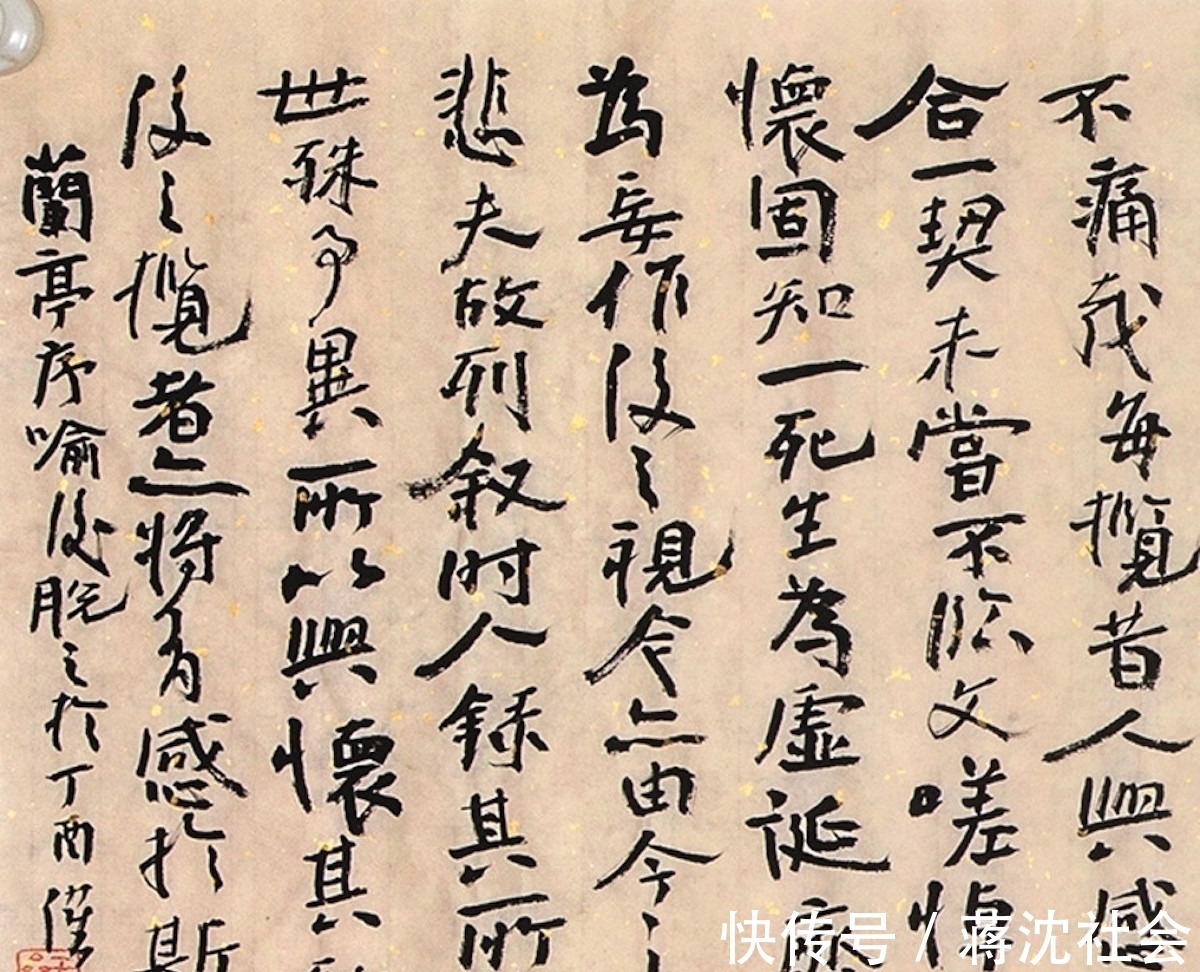 不痛哉每攬昔人興感
合一契未嘗不臨文嗟悼
懷固知一死生為虛誕
為妄作後之視今亦由今之
悲夫故列叙时人錄其所
世殊事異所以興懷其
後之攬者亦將有感於斯
蘭亭序喻後脫之於丁酉
快传号 / 蒋沈社会